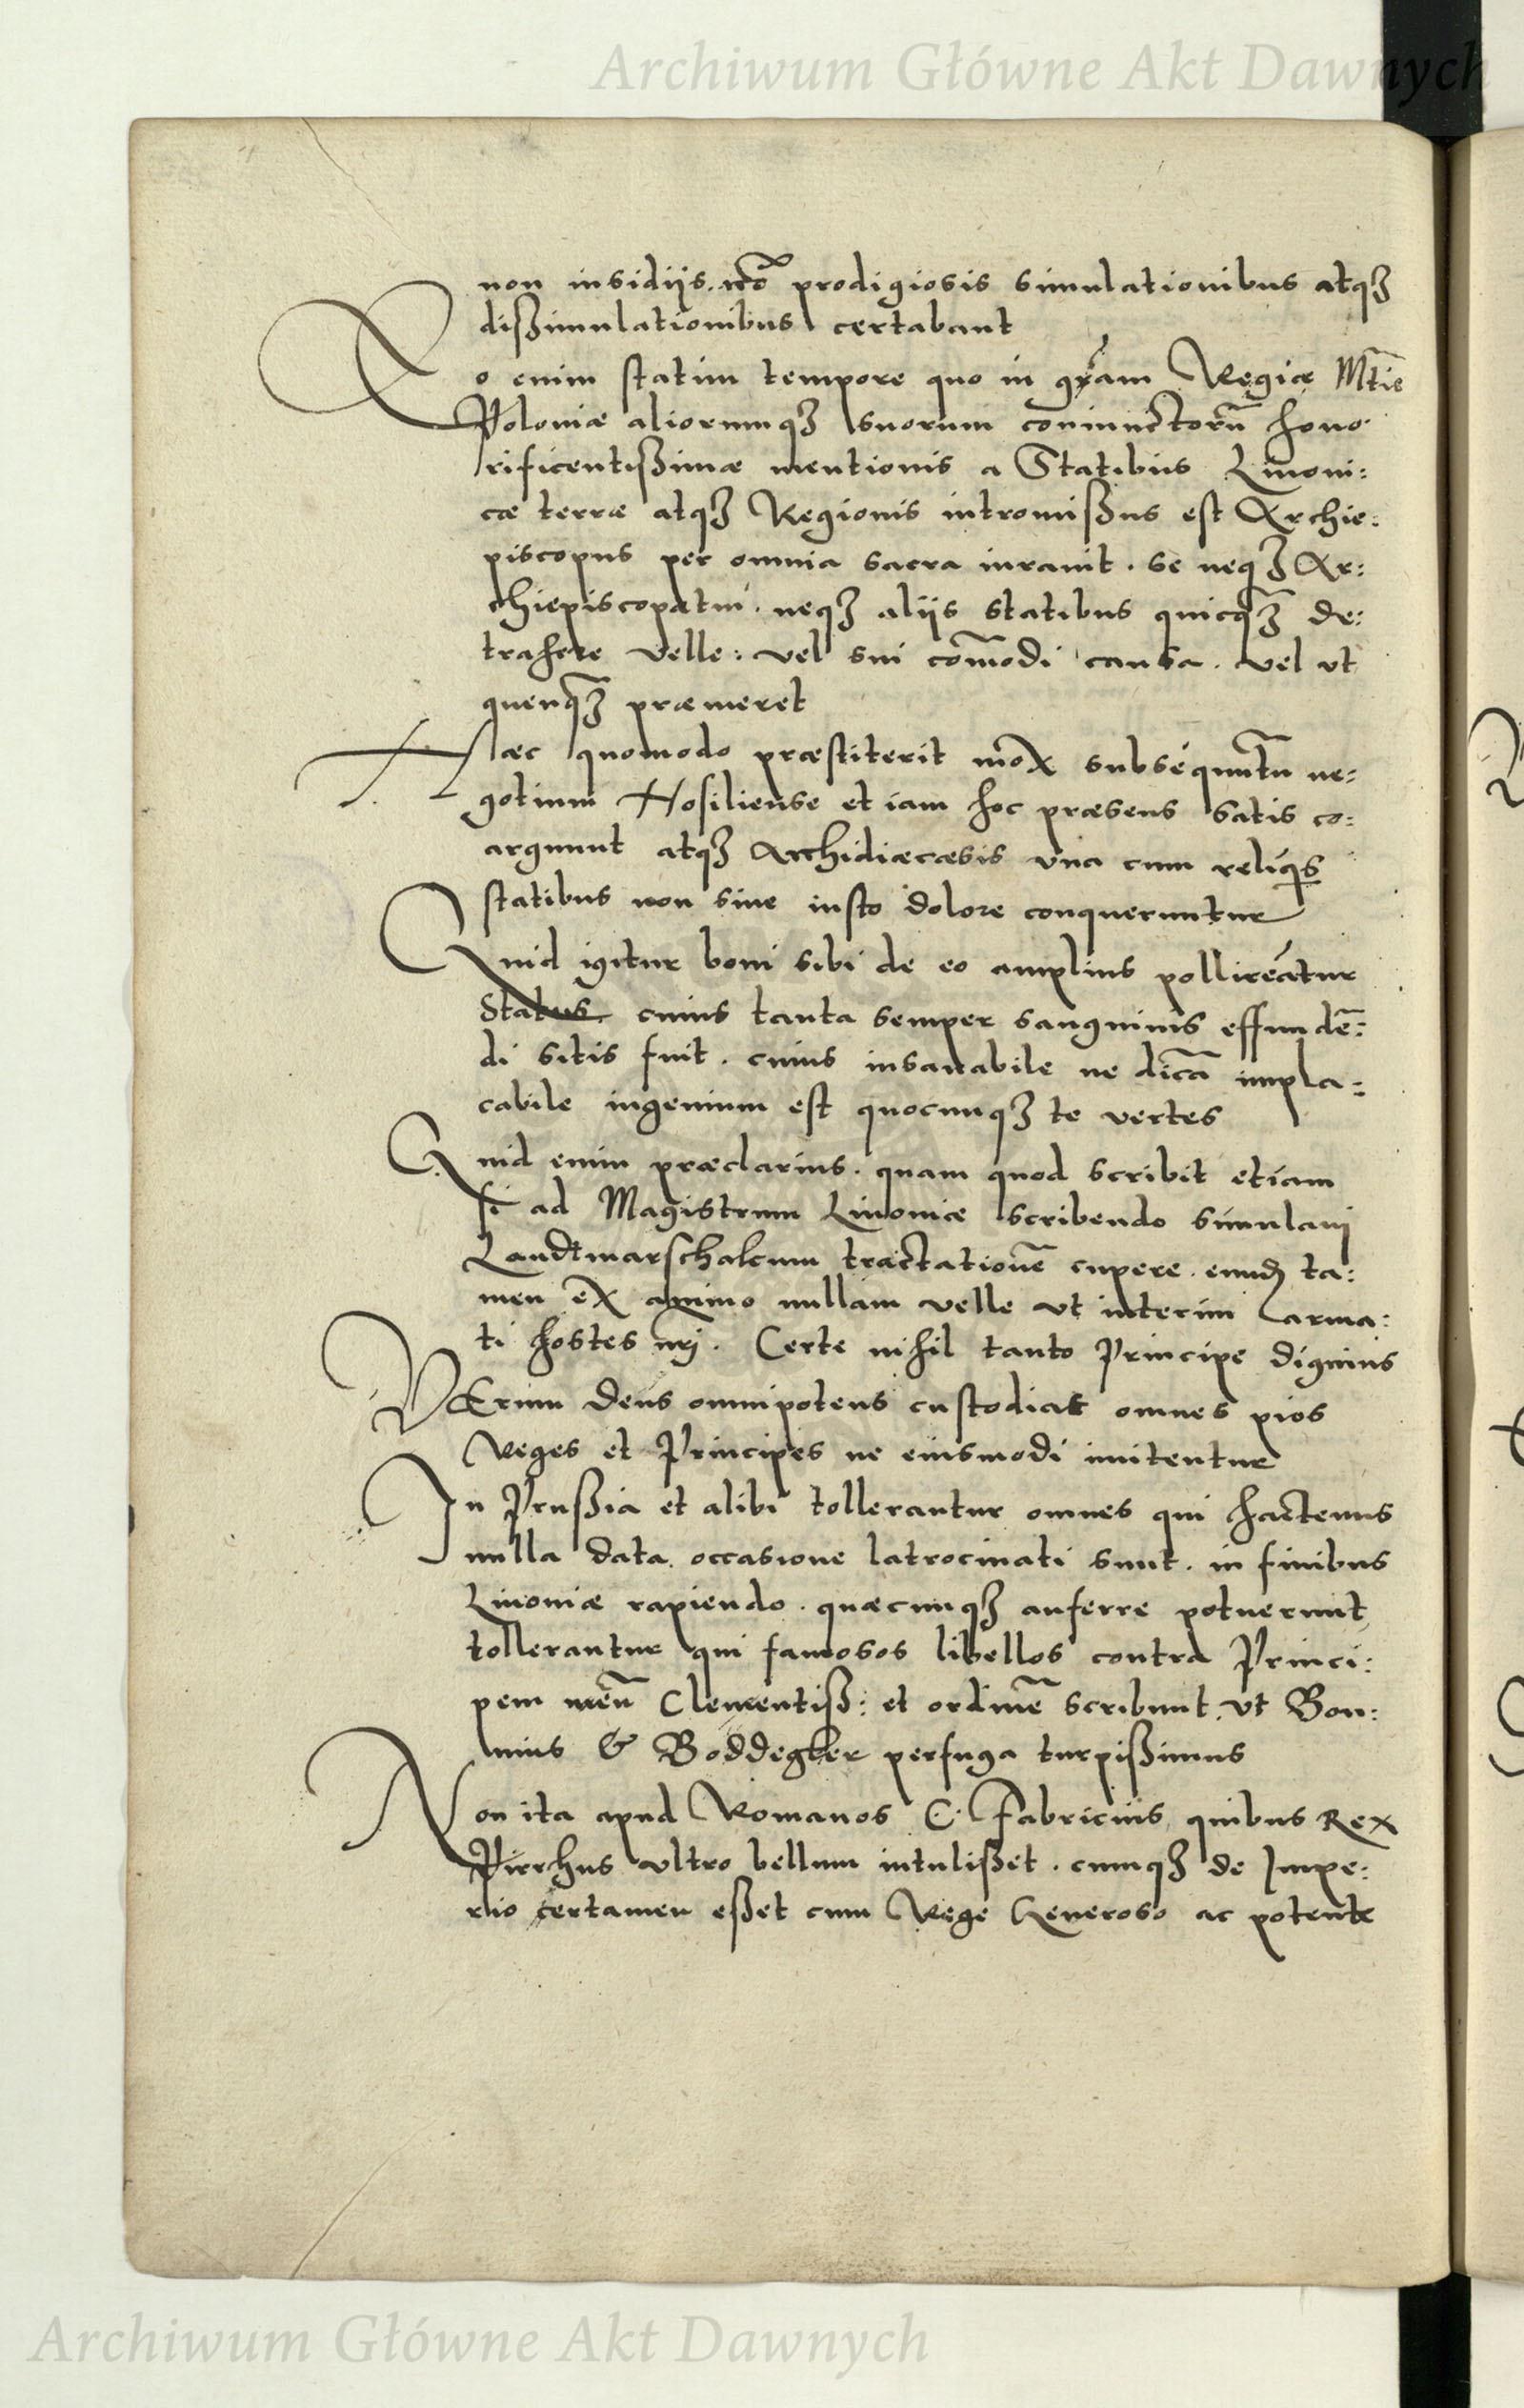 Archiwum Główne Akt Dawnych
non insidijs. nō prodigiosis simulationibus atqȝ
dißimulationibus certabant
Eo enim statim tempore quo in gram Regiæ Mtis
Poloniæ aliorumqȝ suorum coniunctorū hono
rificentißimæ mentionis a Statibus Liuoni:
cæ terræ atqȝ Regionis intromißus est Archie:
piscopus per omnia sacra iurauit. se neqȝ Ar:
chiepiscopatui. neqȝ aliis statibus quicqȝ de:
trahere velle: vel sui cōmodi causa. vel vt
quenqȝ præmeret
Hæc quomodo præstiterit mox subsequntū ne:
gotium Hosiliense et iam hoc præsens satis co:
argunt atqȝ Archidiæcæsis vna cum reliqis
statibus non sine iusto dolore conqueruntur
Quid igitur boni sibi de eo amplius pollireatur
Status cuius tanta semper sanguinis effundē:
di sitis fuit. cuius insanabile ne dicā impla:
cabile ingenium est quocunqȝ te vertes
Quid enim præclarius. quam quod scribit etiam
si ad Magistrum Liuoniæ scribendo simulaui
Landtmarschalcum tractationē cupere. eund ta:
men ex animo nullam velle vt interim arma:
ti hostes nrj. Certe nihil tanto Principe dignius
VErum Deus omnipotens custodiat omnes pios
Reges et Principes ne eiusmodi imitentur
In Prußia et alibi tollerantur omnes qui hactenus
nulla data occasione latrocinati sunt. in finibus
Liuoniæ rapiendo. quæcunqȝ auferre potuerunt
tollerantur qui famosos libellos contra Princi:
pem meū Clementiß: et ordinē scribunt. vt Bon:
nius & Boddegker perfuga turpißimus
Non ita apud Romanos C. Fabricius quibus Rex
Pirrhus vltro bellum intulißet. cumqȝ de Impe:
rio certamen eßet cum Rege Generoso ac potente
Archiwum Główne Akt Dawnych